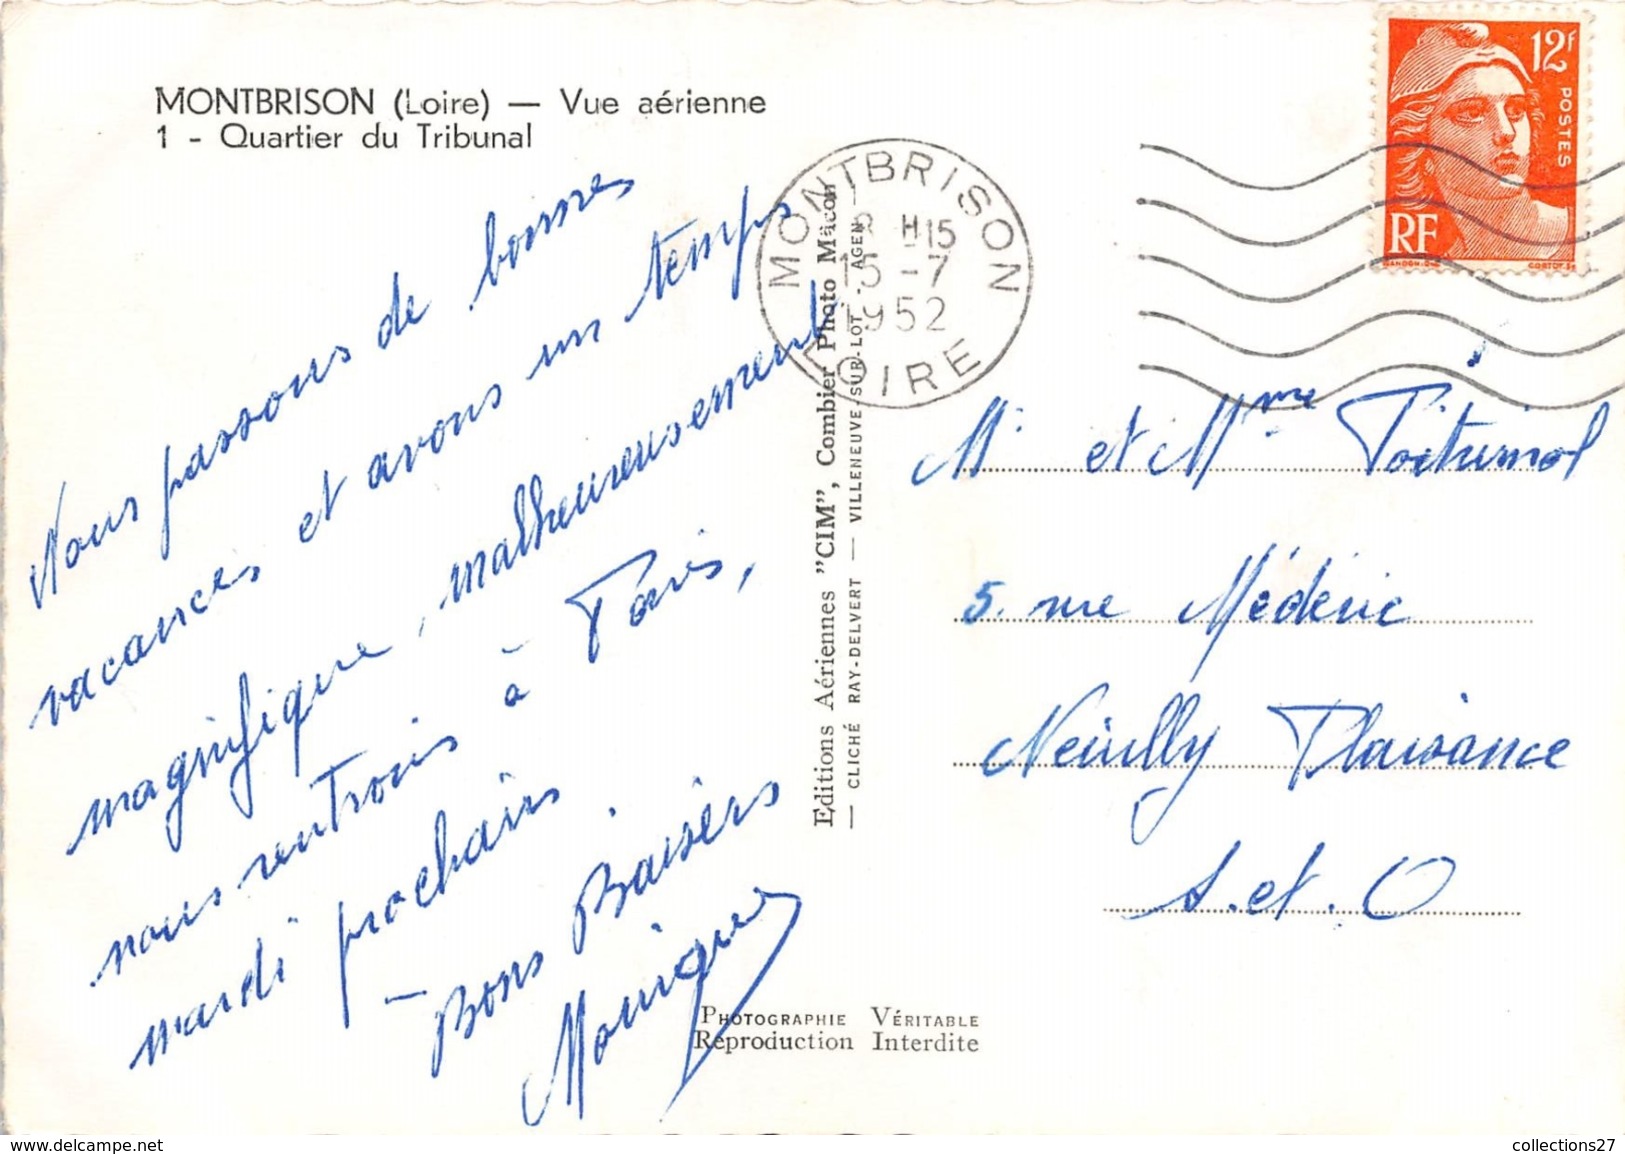 MONTBRISON (Loire) — Vue aérienne
1 - Quartier du Tribunal
Nous passons de bonnes
vacances et avons un temps
magnifique, malheureusement
nous rentrons à Paris,
mardi prochain.
— Bons Baisers
Monique
Editions Aériennes "CIM", Combier Photo Macon
— CLICHÉ RAY-DELVERT — VILLENEUVE-SUR-LOT - AGEN —
PHOTOGRAPHIE VÉRITABLE
Reproduction Interdite
MONTBRISON
H15
15-7
1952
LOIRE
12F
POSTES
RF
GANDON
CORTOT
M. et Mme
5. rue Médéric
Neuilly Plaisance
S. et. O
collections27